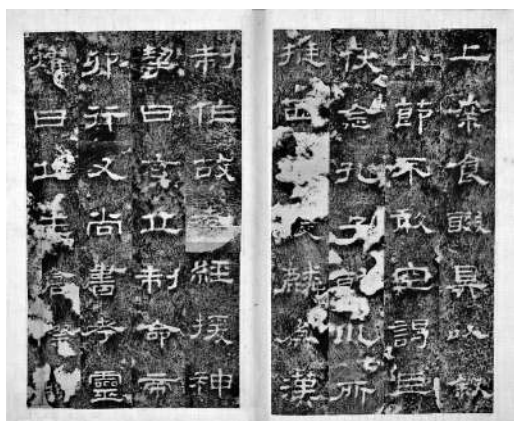 上案食醊具以叙
小節不敢空謁臣
伏念孔子乾巛所
挺西麟爲漢
制作故孝經援神
挈曰玄丘制命帝
卯行又尚書考靈
燿曰丘生倉際